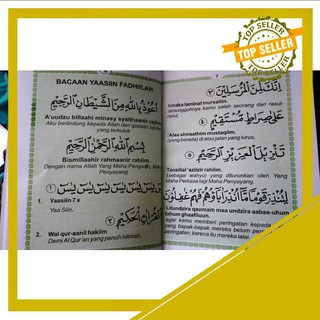 TOP SELLER
BACAAN YAASIIN FADHIILAH
أَعُوْذُ بِاللهِ مِنَ الشَّيْطَانِ الرَّجِيْمِ
A'uudzu billaahi minasy syaithaanir rajiim
Aku berlindung kepada Allah dari godaan syaitan
yang terkutuk
بِسْمِ اللهِ الرَّحْمٰنِ الرَّحِيْمِ
Bismillaahir rahmaanir rahiim.
Dengan nama Allah Yang Maha Pengasih, Maha
Penyayang
يٰسۤ يٰسۤ يٰسۤ يٰسۤ يٰسۤ يٰسۤ يٰسۤ ١
1. Yaasiin 7 x
Yaa Siin.
وَالْقُرْاٰنِ الْحَكِيْمِ
2. Wal qur-aanil hakiim
Demi Al Qur'an yang penuh hikmah.
اِنَّكَ لَمِنَ الْمُرْسَلِيْنَ ٣
Innaka laminal mursaliin.
sesungguhnya kamu salah seorang dari rasul-
rasul.
عَلٰى صِرَاطٍ مُّسْتَقِيْمٍ ٤
'Alaa shiraathim mustaqiim.
(yang berada) di atas jalan yang lurus,
تَنْزِيْلَ الْعَزِيْزِ الرَّحِيْمِ ٥
Tanziilal 'aziizir rahiim.
(sebagai wahyu) yang diturunkan oleh Yang
Maha Perkasa lagi Maha Penyayang.
لِتُنْذِرَ قَوْمًا مَّآ اُنْذِرَ اٰبَاۤؤُهُمْ فَهُمْ غٰفِلُوْنَ
Litundzira qaumam maa undzira aabaa-uhum
fahum ghaafiluun.
agar kamu memberi peringatan kepada
bapak-bapak mereka belum
peringatan, karena itu mereka lalai.
TOP SELLER